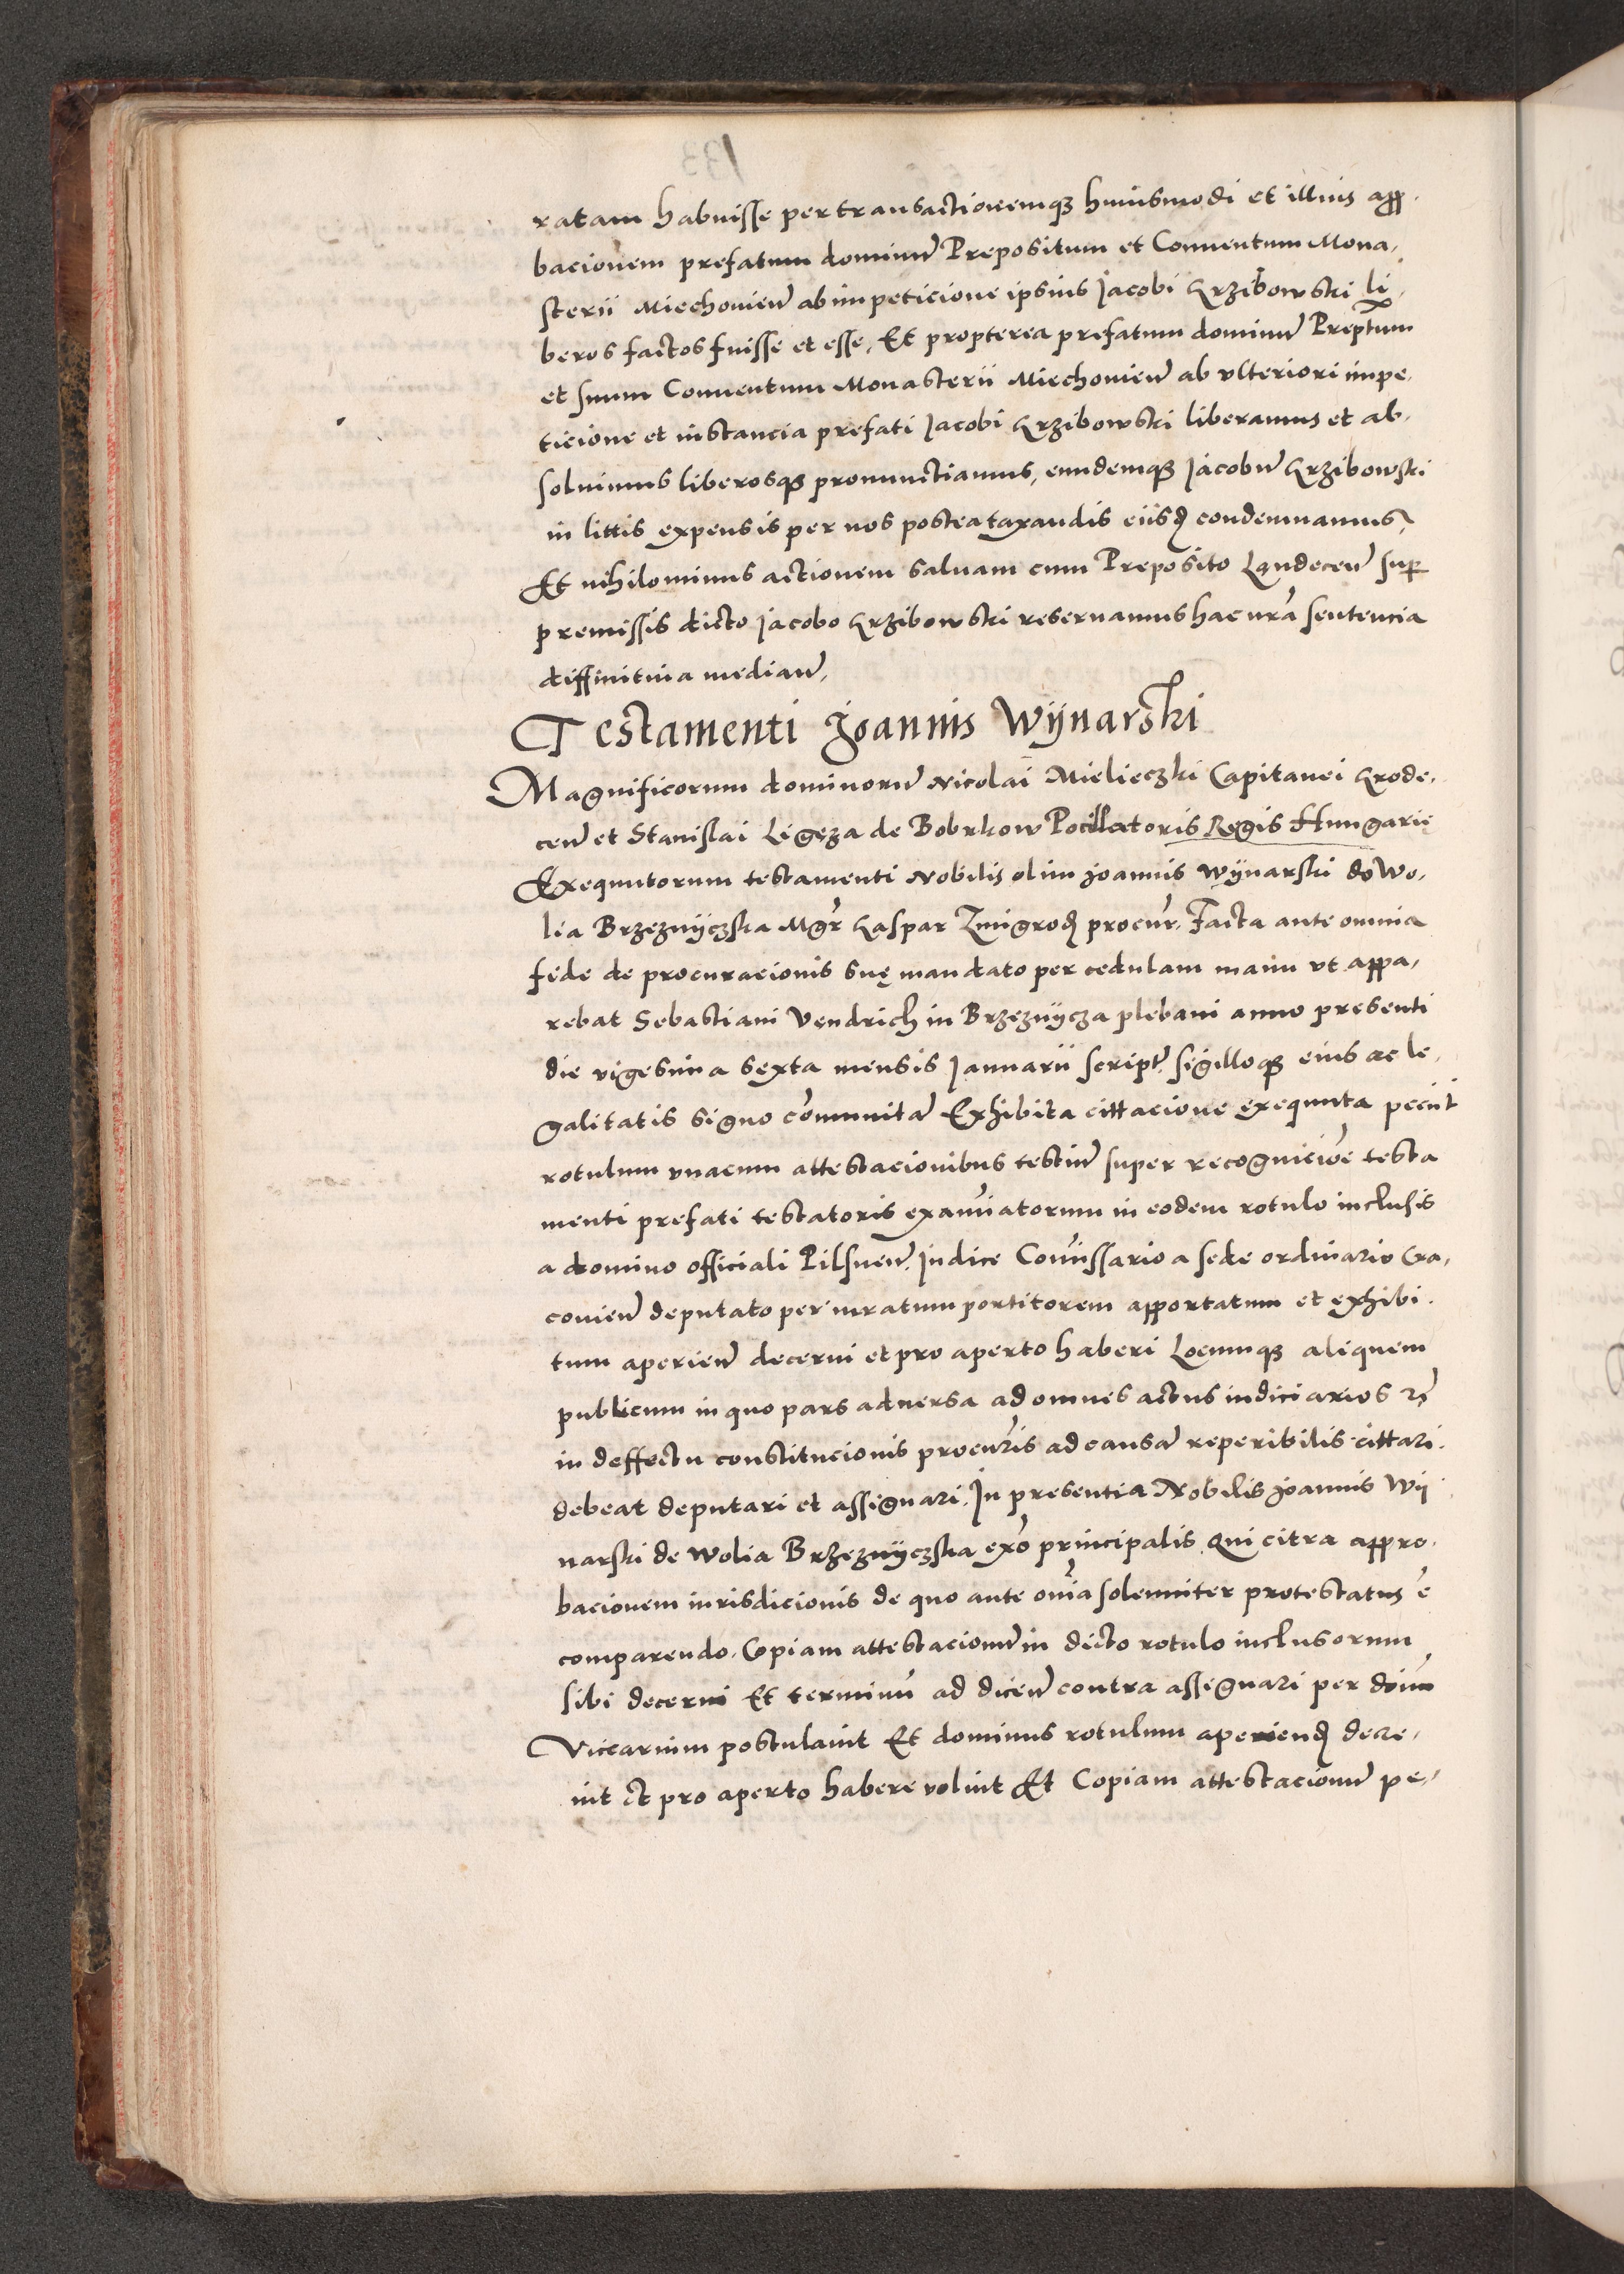 ratam habuisse per transactionemq; huiusmodi et illius app.
bacionem prefatum dominū Prepositum et Conuentum Mona,
sterii Miechouieñ ab impeticione ipsius Jacobi Grzibowski li,
beros factos fuisse et esse, Et propterea prefatum dominū Preptum
et suum Conuentum Monasterii Miechouieñ ab vlteriori impe,
ticione et instancia prefati Jacobi Grzibowski liberamus et ab,
soluimus liberosq; pronunctiamus, eundemq; Jacobū Grzibowski
in littis expensis per nos postea taxandis eiisd condemnamus,
Et nihilominus actionem saluam cum Preposito Lendeceñ sup
premissis dicto Jacobo Grzibowski reseruamus hac nr̃a sentencia
diffinitiua mediañ,
Testamenti Joannis Wÿnarski
Magnificorum dominorū Nicolai Mielieczki Capitanei Grode,
ceñ et Stanislai Ligęza de Bobrkow Pocillatoris Regis Hungarię
Exequutorum testamenti Nobilis olim Joannis Wÿnarski de Wo,
lia Brzeznÿczska Mgr̃ Gaspar Zmigrod procur̃. Facta ante omnia
fede de procuracionis suę mandato per cedulam manu vt appa,
rebat Sebastiani Vendrich in Brzeznÿcza plebani anno presenti
die vigesima sexta mensis Januarii script sigilloq; eius ac le,
galitatis signo com̃unitā Exhibita cittacione exequuta peciit
rotulum vnacum attestacionibus testiū super recognicioẽ testa
menti prefati testatoris exam̃iatorum in eodem rotulo inclusis
a domino officiali Pilsneñ. Judice Com̃issario a sede ordinario Cra,
couieñ deputato per iuratum portitorem apportatum et exhibi.
tum aperieñ decerni et pro aperto haberi Locumq; aliquem
publicum in quo pars aduersa ad omnes actus iudiciarios
in deffectu constitucionis procur̃is ad causā reperibilis cittari.
debeat deputari et assignari. In presentia Nobilis Joannis Wÿ
narski de Wolia Brzeznÿczska exõ principalis Qui citra appro.
bacionem iurisdicionis de quo ante om̃ia solenniter protestatus ẽ
comparendo. Copiam attestacionū in dicto rotulo inclusorum
sibi decerni Et terminū ad diceñ contra assignari per dom̃
Vicarium postulauit Et dominus rotulum aperiend decre,
uit et pro aperto habere voluit Et Copiam attestacionū pe,